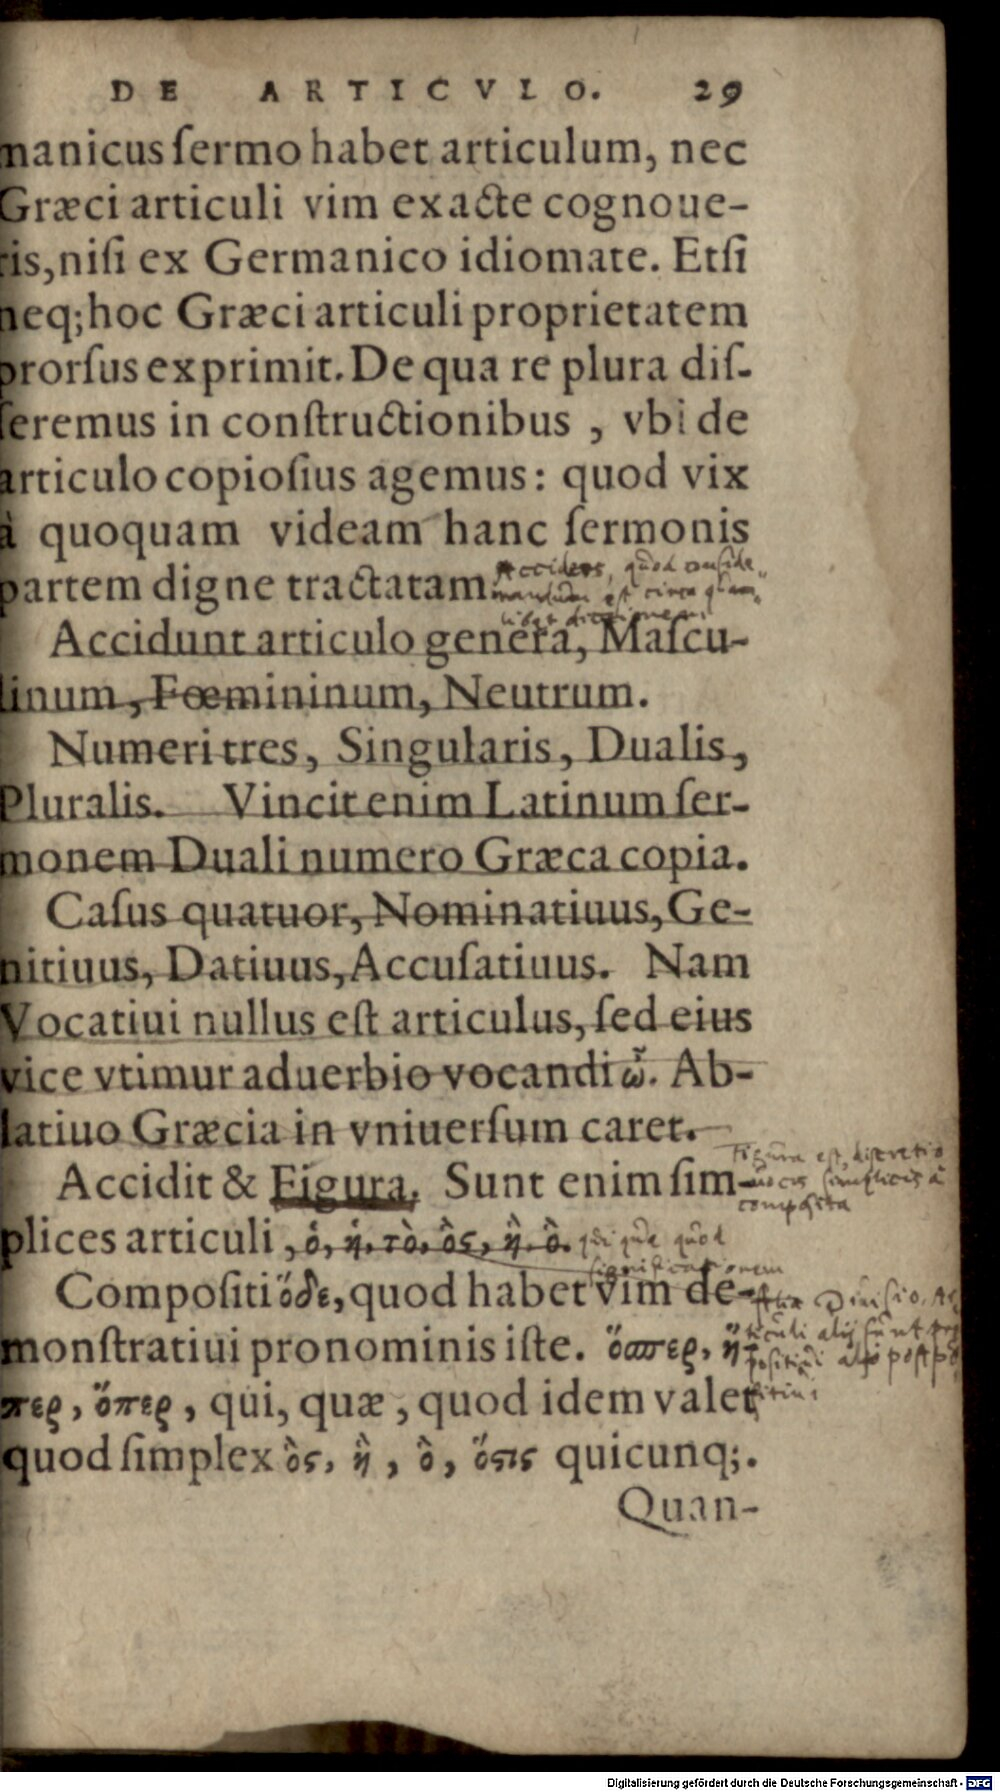 DE ARTICVLO. 29
manicus ſermo habet articulum, nec
Græci articuli vim exacte cognoue-
ris, niſi ex Germanico idiomate. Etſi
neq; hoc Græci articuli proprietatem
prorſus exprimit. De qua re plura diſ-
ſeremus in conſtructionibus, vbi de
articulo copioſius agemus: quod vix
à quoquam videam hanc ſermonis
partem digne tractatam.
Accidens, quod conside-
randum est circa quam-
libet dictionem
Accidunt articulo genera, Maſcu-
linum, Fœmininum, Neutrum.
Numeri tres, Singularis, Dualis,
Pluralis. Vincit enim Latinum ſer-
monem Duali numero Græca copia.
Caſus quatuor, Nominatiuus, Ge-
nitiuus, Datiuus, Accuſatiuus. Nam
Vocatiui nullus eſt articulus, ſed eius
vice vtimur aduerbio vocandi ὦ. Ab-
latiuo Græcia in vniuerſum caret.
Figura est, discretio
vocis simplicis à
composita
Accidit & Figura. Sunt enim ſim-
plices articuli, ὁ, ἡ, τὸ, ὃς, ἣ, ὃ.
qui quæ quod
significationem
Compoſiti ὅδε, quod habet vim de-
monſtratiui pronominis iſte. ὅσπερ, ἥ-
περ, ὅπερ, qui, quæ, quod idem valet
quod ſimplex ὃς, ἣ, ὃ, ὅστις quicunq;.
Alia Diuisio. Ar-
ticuli alij sunt præ-
positiui alij postpo-
sitiui
Quan-
Digitalisierung gefördert durch die Deutsche Forschungsgemeinschaft - DFG